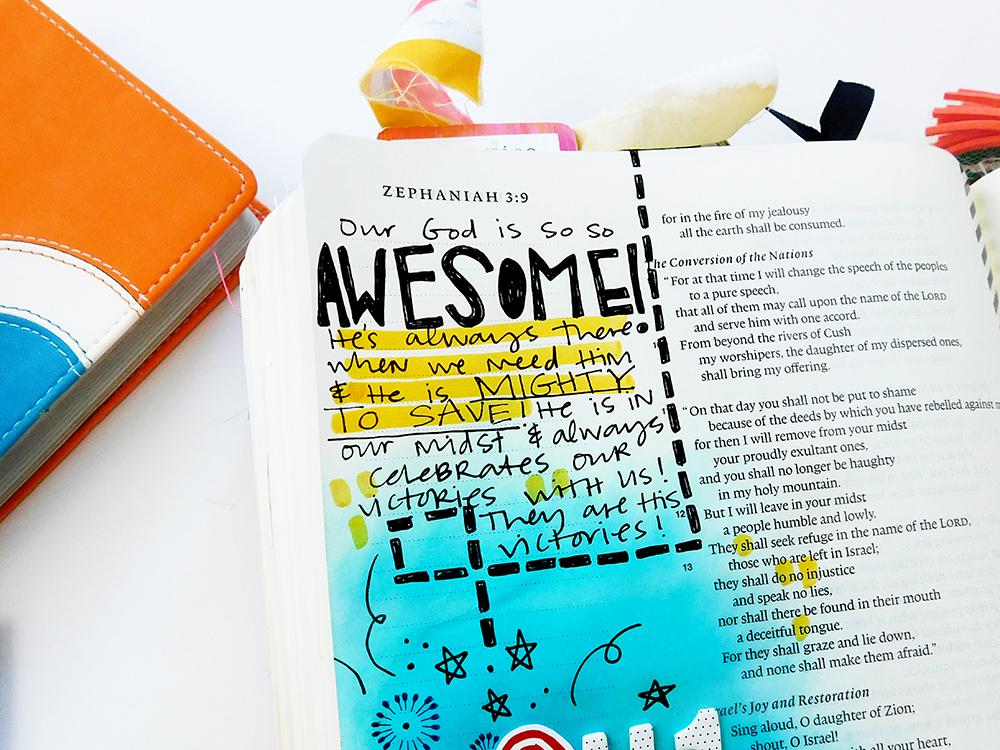 ZEPHANIAH 3:9
Our God is so so
AWESOME!
He's always there
when we need Him
& He is MIGHTY
TO SAVE! He is in
our midst & always
celebrates our
victories with us!
They are His
victories!
for in the fire of my jealousy
all the earth shall be consumed.
he Conversion of the Nations
"For at that time I will change the speech of the peoples
to a pure speech,
that all of them may call upon the name of the LORD
and serve him with one accord.
From beyond the rivers of Cush
my worshipers, the daughter of my dispersed ones,
shall bring my offering.
"On that day you shall not be put to shame
because of the deeds by which you have rebelled against
for then I will remove from your midst
your proudly exultant ones,
and you shall no longer be haughty
in my holy mountain.
But I will leave in your midst
a people humble and lowly.
12 They shall seek refuge in the name of the LORD,
those who are left in Israel;
13 they shall do no injustice
and speak no lies,
nor shall there be found in their mouth
a deceitful tongue.
For they shall graze and lie down,
and none shall make them afraid."
rael's Joy and Restoration
Sing aloud, O daughter of Zion;
shout, O Israel!
all your heart,